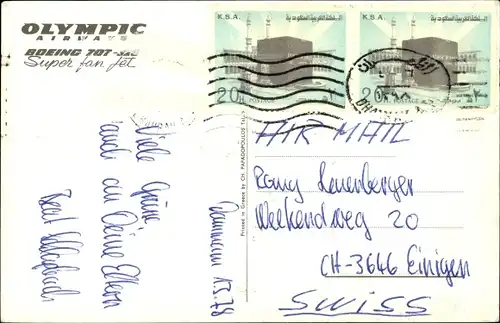 OLYMPIC
AIRWAYS
BOEING 707-320
Super fan jet
K.S.A.
المملكة العربية السعودية
20 H. POSTAGE
K.S.A.
المملكة العربية السعودية
20 H. POSTAGE
Viele Grüsse
auch an Deine Eltern
Beat
Dammam 13.78
Printed in Greece by CH. PAPADOPOULOS
AIR MAIL
Romy Leuenberger
Weekendweg 20
CH-3646 Einigen
SWISS